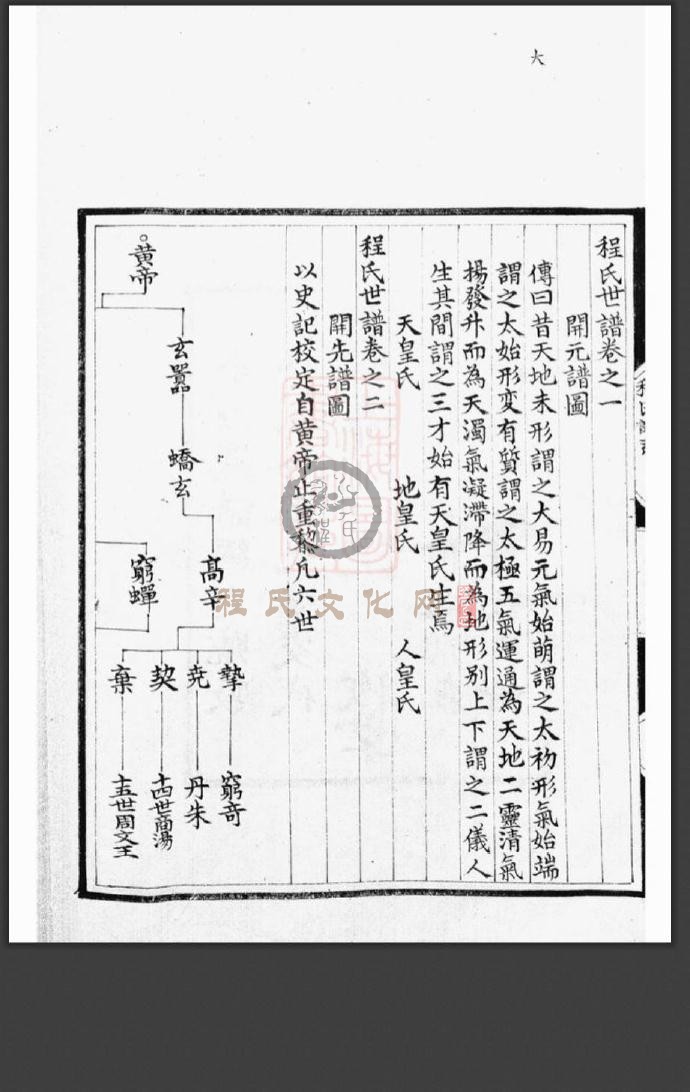 六
程氏世譜卷之一
開元譜圖
傳曰昔天地未形謂之大易元氣始萌謂之太初形氣始端
謂之太始形変有質謂之太極五氣運通為天地二靈清氣
揚發升而為天濁氣凝滯降而為地形別上下謂之二儀人
生其間謂之三才始有天皇氏生焉
天皇氏 地皇氏 人皇氏
程氏世譜卷之二
開先譜圖
以史記校定自黄帝止重黎凢六世
黄帝
玄囂
蟜玄
高辛
窮蟬
摯 尭 契 棄
窮竒
丹朱
十四世商湯
十五世周文王
程氏文化网